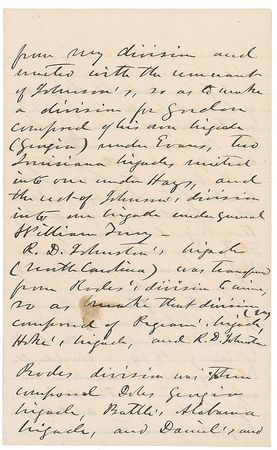 from my division and
united with the remnant
of Johnson's, so as to make
a division for Gordon
composed of his own brigade
(Georgia) under Evans, two
Louisiana brigades united
into one under Hays, and
the rest of Johnson's division
into one brigade under General
William Terry—
R. D. Johnston's brigade
(North Carolina) was transferred
from Rodes' division to mine,
so as make that division (my)
composed of Pegram's brigade,
Hoke's brigade, and R. D. Johnston
Rodes division was then
composed Doles Georgia
brigade, Battle's Alabama
brigade, and Daniel's and